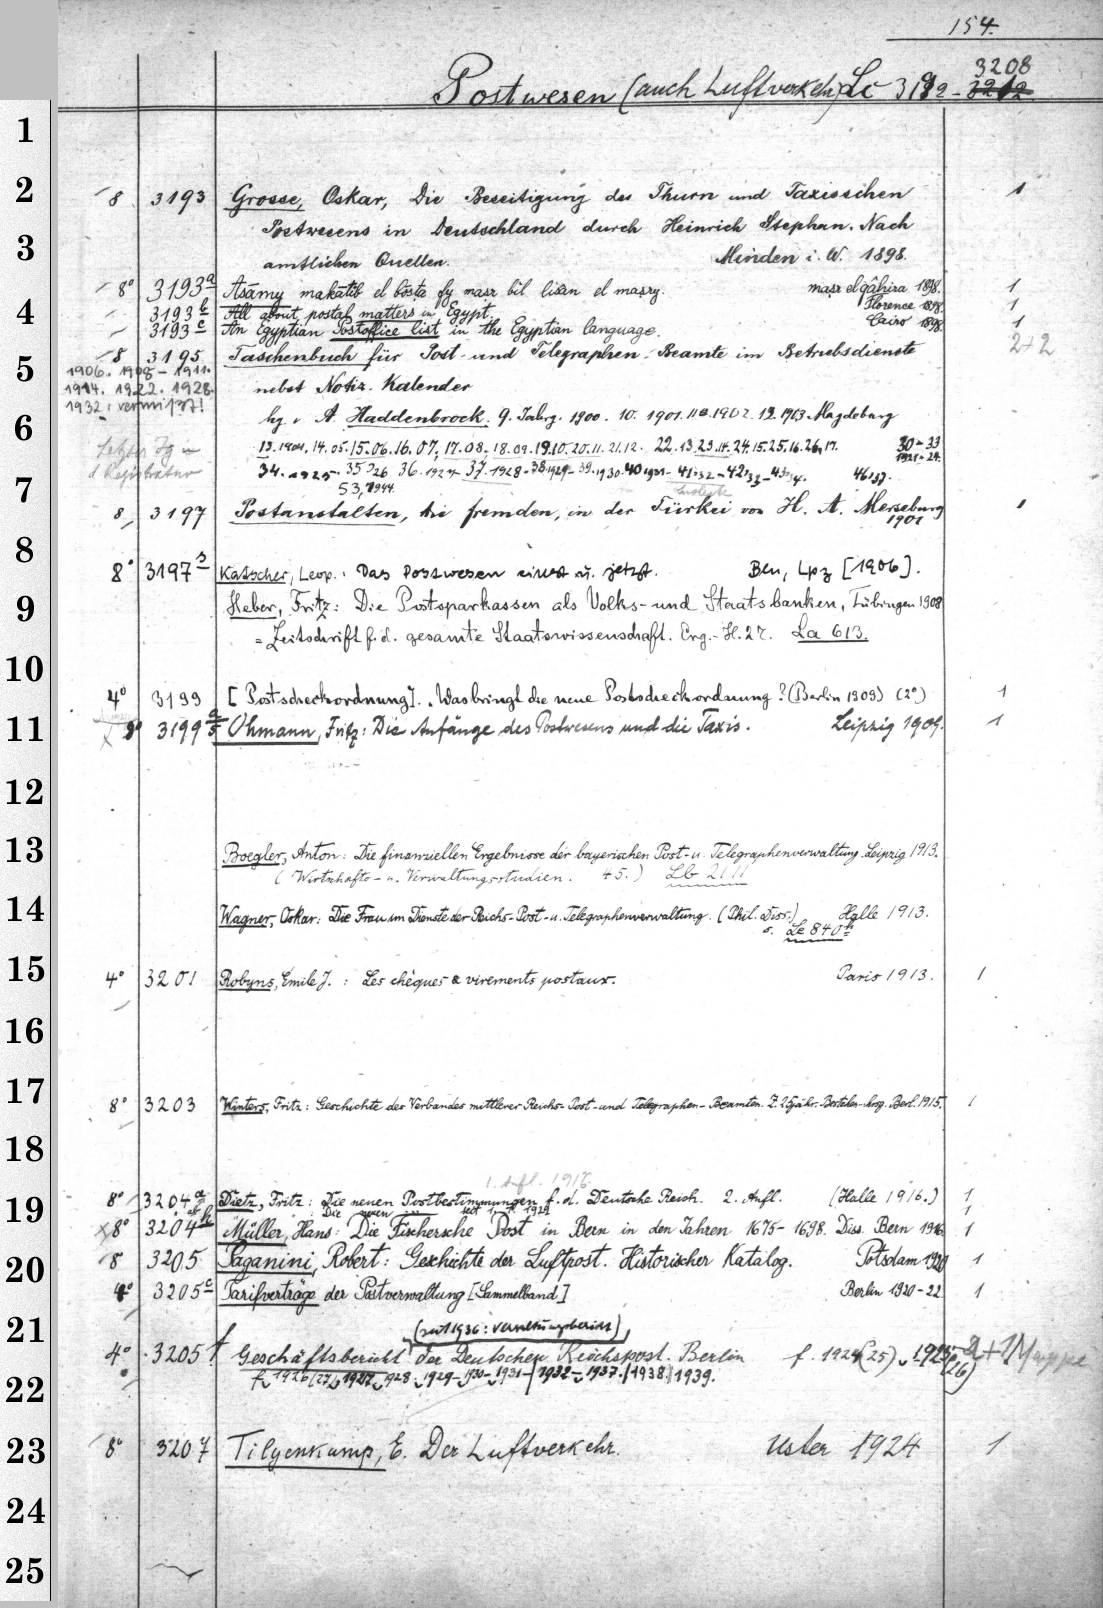 154.
3208
Postwesen (auch Luftverkehr) Lc 3192 - 3212
1
2
8 3193 Grosse, Oskar, Die Beseitigung des Thurn und Taxisschen 1
Postwesens in Deutschland durch Heinrich Stephan. Nach
3
amtlichen Quellen. Minden i. W. 1898.
8° 3193a Asāmy makātib el bōsta fy masr bil lisān el masry. masr elqâhira 1898. 1
4
3193b All about postal matters in Egypt. Florence 1898. 1
3193c An Egyptian Postoffice list in the Egyptian language. Cairo 1898 1
2+2
8 3195 Taschenbuch für Post- und Telegraphen-Beamte im Betriebsdienste
5
1906. 1908 - 1911.
1914. 1922. 1928. nebst Notiz-Kalender
1932
hg. v. A. Haddenbrock. 9. Jahrg. 1900. 10. 1901. 11. 1902. 12. 1903. Magdeburg
6
13. 1904. 14. 05. 15. 06. 16. 07. 17. 08. 18. 09. 19. 10. 20. 11. 21. 12. 22. 13. 23. 14. 24. 15. 25. 16. 26. 17. 30 - 33
1921 - 24.
34. 1925. 35. 26 36. 1927 37. 1928 - 38 1929 - 39. 1930 - 40 1931 - 41. 32 - 42. 33 - 46. 37.
7
53. 1944.
8 3197 Postanstalten, die fremden, in der Türkei von H. A. Merseburg 1
1901
8
8° 3197a Katscher, Leop.: Das Postwesen einst u. jetzt. Bln, Lpz [1906].
9
Heber, Fritz: Die Postsparkassen als Volks- und Staatsbanken, Tübingen 1908
= Zeitschrift f. d. gesamte Staatswissenschaft. Erg.-H. 27. La 613.
10
4° 3199 [Postscheckordnung]. Was bringt die neue Postscheckordnung? (Berlin 1909) (2°) 1
11
8° 3199a Ohmann, Fritz: Die Anfänge des Postwesens und die Taxis. Leipzig 1909. 1
12
13
Boegler, Anton: Die finanziellen Ergebnisse der bayerischen Post- u. Telegraphenverwaltung. Leipzig 1913.
(Wirtschafts- u. Verwaltungsstudien. 45.) Lb 2111
14
Wagner, Oskar: Die Frau im Dienste der Reichs-Post- u. Telegraphenverwaltung. (Phil. Diss.) Halle 1913.
s. Le 840
15
4° 3201 Robyns, Emile J. : Les chèques & virements postaux. Paris 1913. 1
16
17
8° 3203 Winters, Fritz: Geschichte des Verbandes mittlerer Reichs-Post- und Telegraphen-Beamten. Z. 25jähr. Bestehen hrsg. Berl. 1915. 1
18
1. Aufl. 1916
8° 3204a Dietz, Fritz: Die neuen Postbestimmungen f. d. Deutsche Reich. 2. Aufl. (Halle 1916.) 1
19
Die neuen 1
8° 3204b Müller, Hans: Die Fischersche Post in Bern in den Jahren 1675 - 1698. Diss. Bern 1916. 1
20
8 3205 Paganini, Robert: Geschichte der Luftpost. Historischer Katalog. Potsdam 1920 1
4° 3205c Tarifverträge der Postverwaltung [Sammelband] Berlin 1920 - 22 1
21
(seit 1936: Verwaltungsbericht)
4° 3205f Geschäftsbericht der Deutschen Reichspost. Berlin f. 1924 (25) 1925 (26) 2+1 Mappe
22
f. 1926 (27), 1927 - 1928 - 1929 - 1930 - 1931 - 1932 - 1937. 1938. 1939.
23
8° 3207 Tilgenkamp, E. Der Luftverkehr. Uster 1924 1
24
25